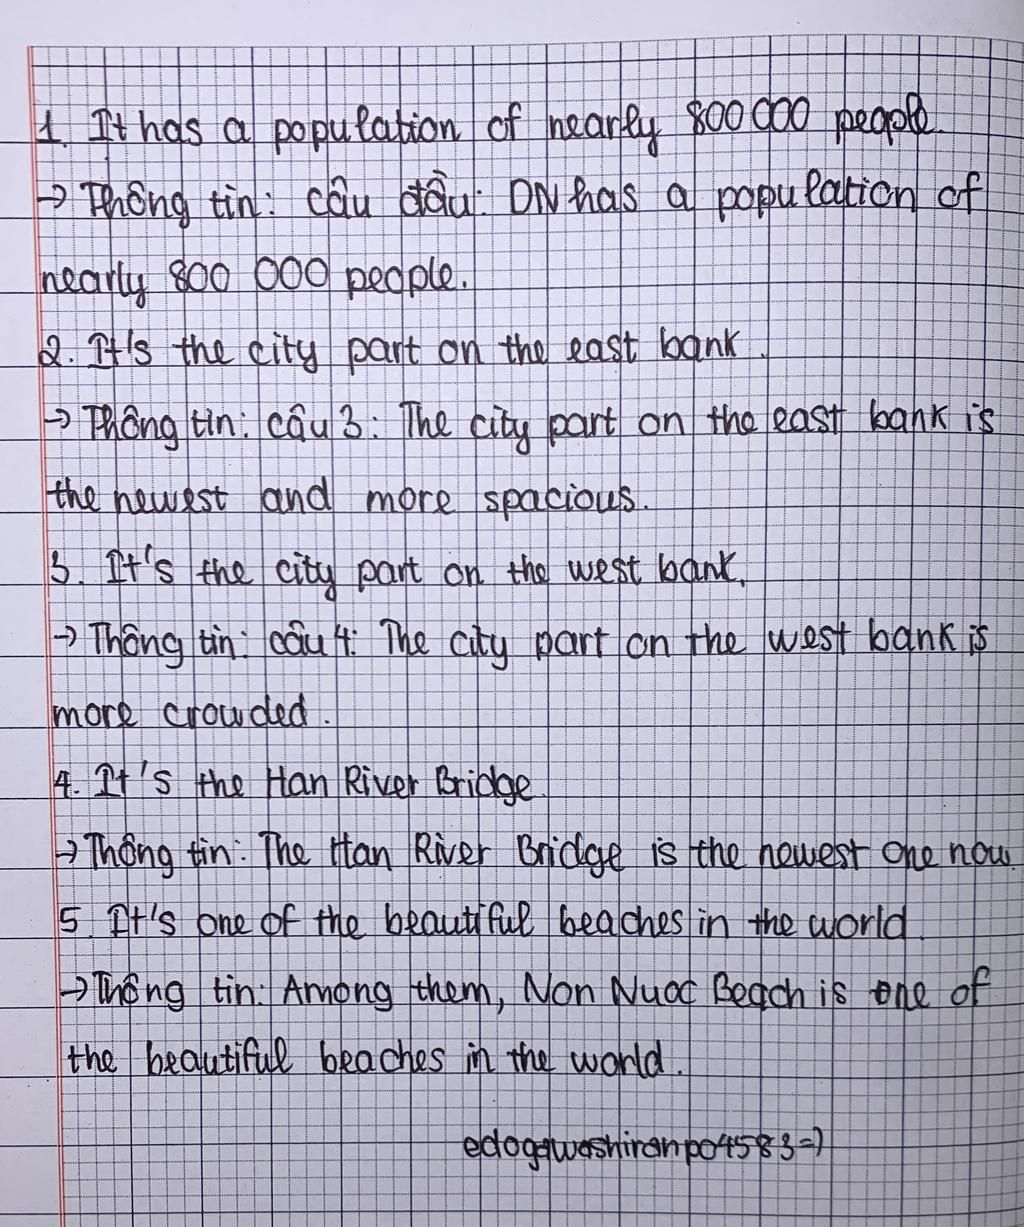 1. It has a population of nearly 800 000 people.
→ Thông tin: câu đầu: DN has a population of
nearly 800 000 people.
2. It's the city part on the east bank.
→ Thông tin: câu 3: The city part on the east bank is
the newest and more spacious.
3. It's the city part on the west bank.
→ Thông tin: câu 4: The city part on the west bank is
more crowded.
4. It's the Han River Bridge.
→ Thông tin: The Han River Bridge is the newest one now.
5. It's one of the beautiful beaches in the world.
→ Thông tin: Among them, Non Nuoc Beach is one of
the beautiful beaches in the world.
edogawashiranpo4583=)